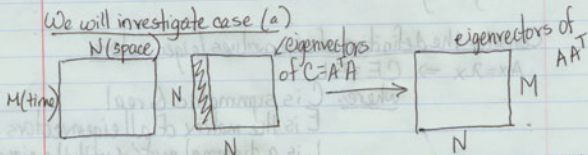 We will investigate case (a)
N(space)
eigenvectors
of C=AᵀA
eigenvectors of
AAᵀ
M(time)
N
M
N
N